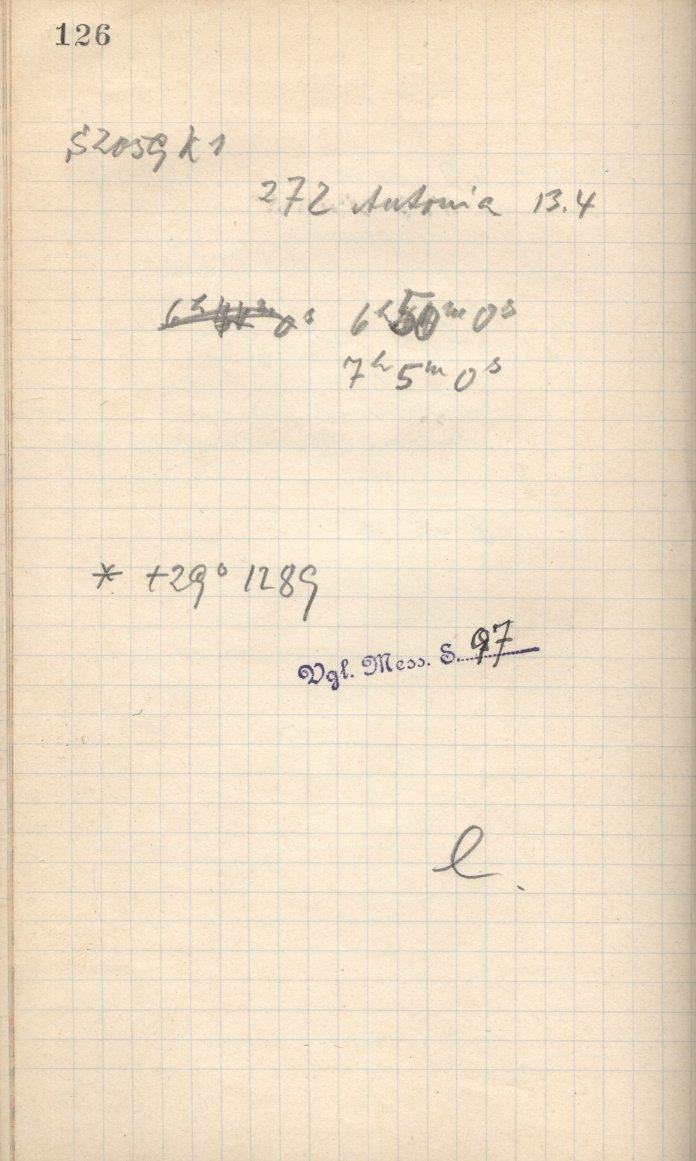 126
S2059 K1
272 Antonia 13.4
6ʰ 44ᵐ 0ˢ 6ʰ 50ᵐ 0ˢ
7ʰ 5ᵐ 0ˢ
* +29° 1289
Vgl. Mess. S. 97
l.